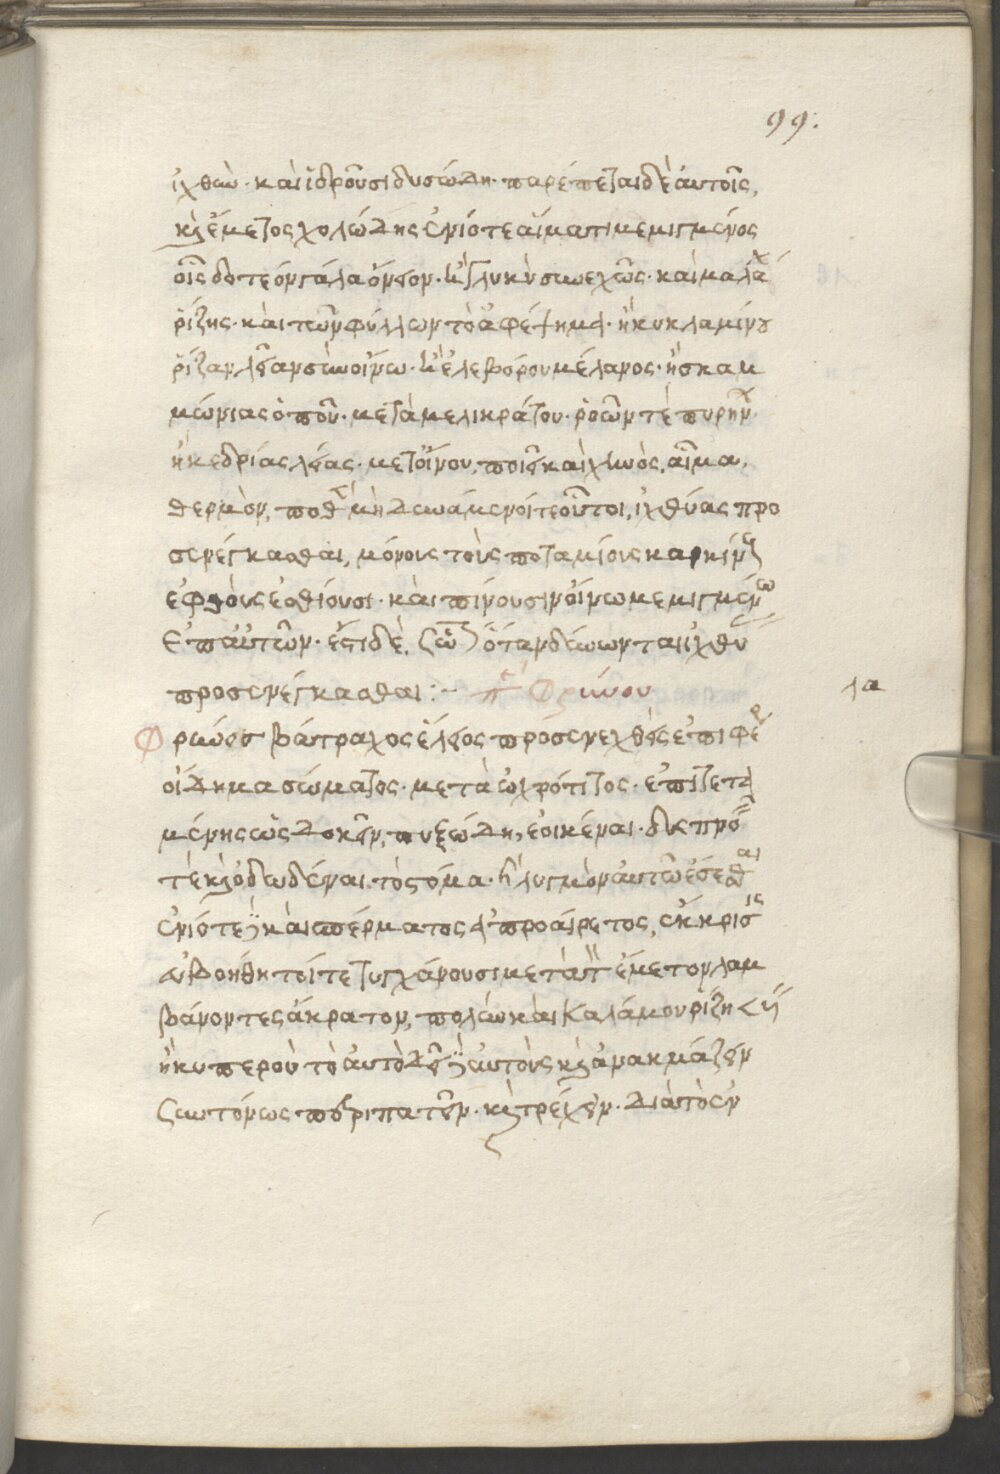 99:
ἰχθὺν· καὶ ἱδροῦσι δυσώδη· παρέπεται δὲ ἀυτοῖς,
καὶ ἔμετος χολώδης ἐνίοτε αἵματι μεμιγμένος
οἷς δοτέον γάλα ὄνιον· ἢ γλυκὺ συνεχῶς· καὶ μαλάχ
ρίζης· καὶ τῶν φύλλων τὸ ἀφέψημα· ἢ κυκλαμίνου
ρίζαν λείαν σὺν οἴνω· ἢ ἐλεβόρου μέλανος· ἢ σκαμ
μωνίας ὀποῦ· μετὰ μελικράτου· ῥοῶν τε πυρήν
ἢ κεδρίας λείας· μετ οἴνου, ποιεῖ καὶ χηνὸς, αἷμα,
θερμὸν, ποθὲν μὴ δυνάμενοί τε οὗτοι, ἰχθύας προ
σενέγκασθαι, μόνους τοὺς ποταμίους καρκίν
ἐφθοὺς ἐσθίουσι· καὶ πίνουσιν οἴνω μεμιγμένω
ἐπ αὐτῶν· ἔστι δὲ, ὅταν δύνωνται ἰχθύ
προσενέγκασθαι :- π Φρύνου
λα
Φρύνος βάτραχος ἕλειος προσενεχθεὶς ἐπιφέ
οἴδημα σώματος· μετὰ ὠχρότητος· ἐπιτετα
μένης ὡς δοκεῖν, πυξώδη, ἐοικέναι· δυσπνό
τε καὶ ὀδωδέναι τὸ στόμα· λυγμὸν αὐτῶ ἕσεσθαι
ἐνίοτε καὶ σπέρματος ἀπροαίρετος, ἔκκρισις
ἀβοήθητοί τε τυγχάνουσι μετὰ ἔμετον λαμ
βάνοντες ἄκρατον, πολὺν καὶ καλάμου ρίζη
ἢ κυπερου τὸ αυτὸ δεῖ αὐτοὺς καὶ ἀνακμάζειν
συντόνως περιπατεῖν· καὶ τρέχειν· διὰ τὸ ἐν